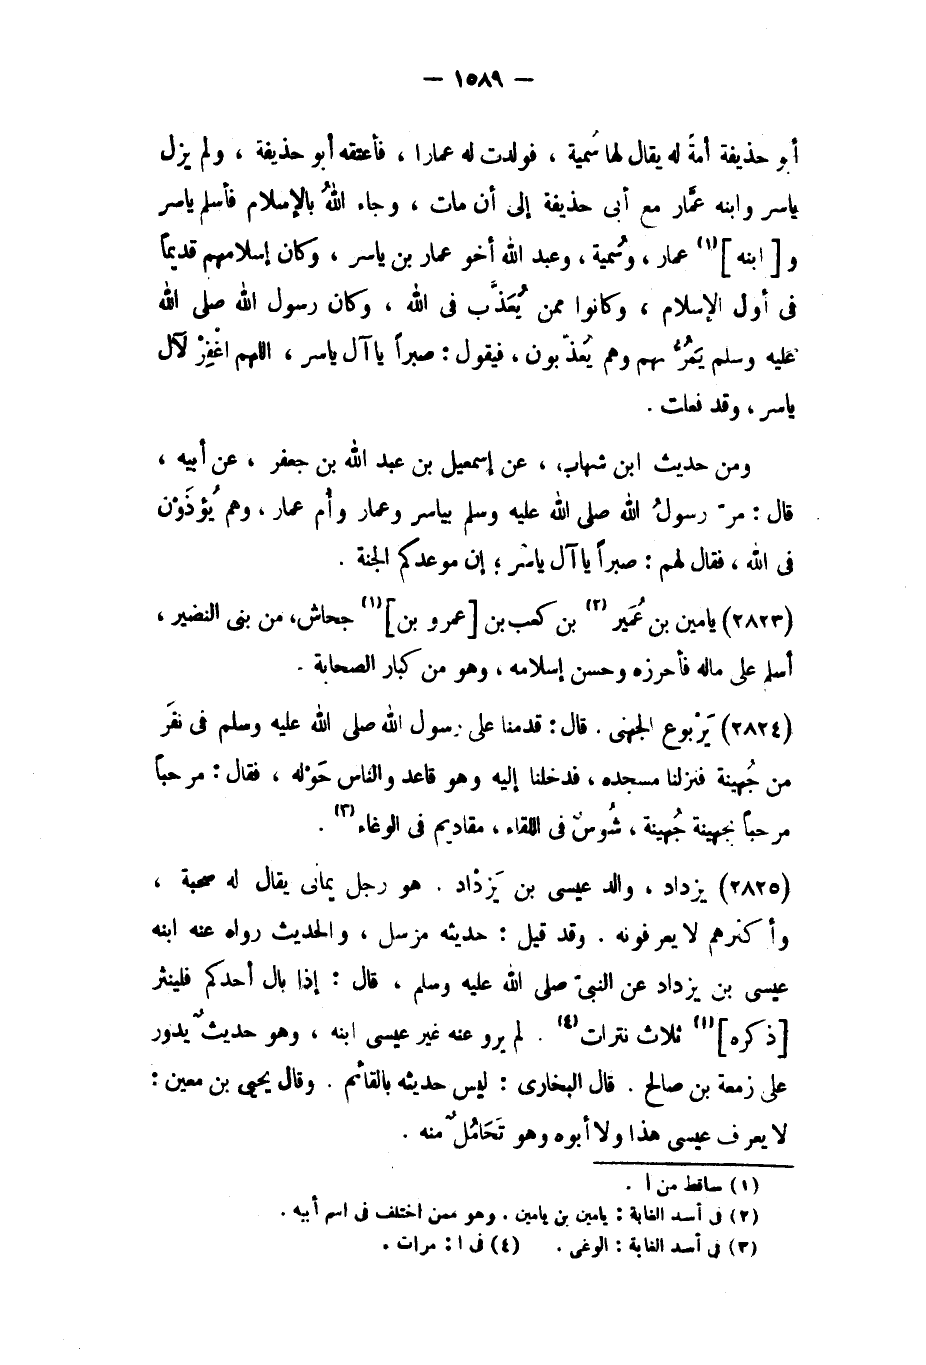 — ١٥٨٩ —
أبو حذيفة أمةً له يقال لها سُمية ، فولدت له عمارا ، فأعتقه أبو حذيفة ، ولم يزل
ياسر وابنه عمَّار مع أبى حذيفة إلى أن مات ، وجاء اللهُ بالإسلام فأسلم ياسر
و [ ابنه ](١) عمار ، وسُمية ، وعبد الله أخو عمار بن ياسر ، وكان إسلامهم قديماً
فى أول الإسلام ، وكانوا ممن يُعَذَّب فى الله ، وكان رسول الله صلى الله
عليه وسلم يَمُرُّ بهم وهم يُعَذّبون ، فيقول : صبراً يا آل ياسر ، اللهم اغْفِرْ لآل
ياسر ، وقد فعلت .
ومن حديث ابن شهاب ، عن إسمعيل بن عبد الله بن جعفر ، عن أبيه ،
قال : مرّ رسولُ الله صلى الله عليه وسلم بياسر وعمار وأُم عمار ، وهم يُؤذَوْن
فى الله ، فقال لهم : صبراً يا آل ياسر ؛ إن موعدكم الجنة .
(٢٨٢٣) يامين بن عُمَير(٢) بن كعب بن [عمرو بن](١) جحاش، من بنى النضير ،
أسلم على ماله فأحرزه وحسن إسلامه ، وهو من كبار الصحابة .
(٢٨٢٤) يَرْبوع الجهنى . قال : قدمنا على رسول الله صلى الله عليه وسلم فى نفَر
من جُهينة فنزلنا مسجده ، فدخلنا إليه وهو قاعد والناس حَوْله ، فقال : مرحباً
مرحباً بجهينة جُهينة ، شُوسٌ فى اللقاء ، مقاديم فى الوغاء(٣) .
(٢٨٢٥) يزداد ، والد عيسى بن يَزْداد . هو رجل يمانى يقال له صحبة ،
وأكثرهم لا يعرفونه . وقد قيل : حديثه مرسل ، والحديث رواه عنه ابنه
عيسى بن يزداد عن النبىّ صلى الله عليه وسلم ، قال : إذا بال أحدكم فلينثر
[ذكره](١) ثلاث نترات(٤) . لم يرو عنه غير عيسى ابنه ، وهو حديثٌ يدور
على زمعة بن صالح . قال البخارى : ليس حديثه بالقائم . وقال يحيى بن معين :
لا يعرف عيسى هذا ولا أبوه وهو تَحَامُلٌ منه .
(١) ساقط من ا .
(٢) فى أسد الغابة : يامين بن يامين . وهو ممن اختلف فى اسم أبيه .
(٣) فى أسد الغابة : الوغى . (٤) فى ا : مرات .